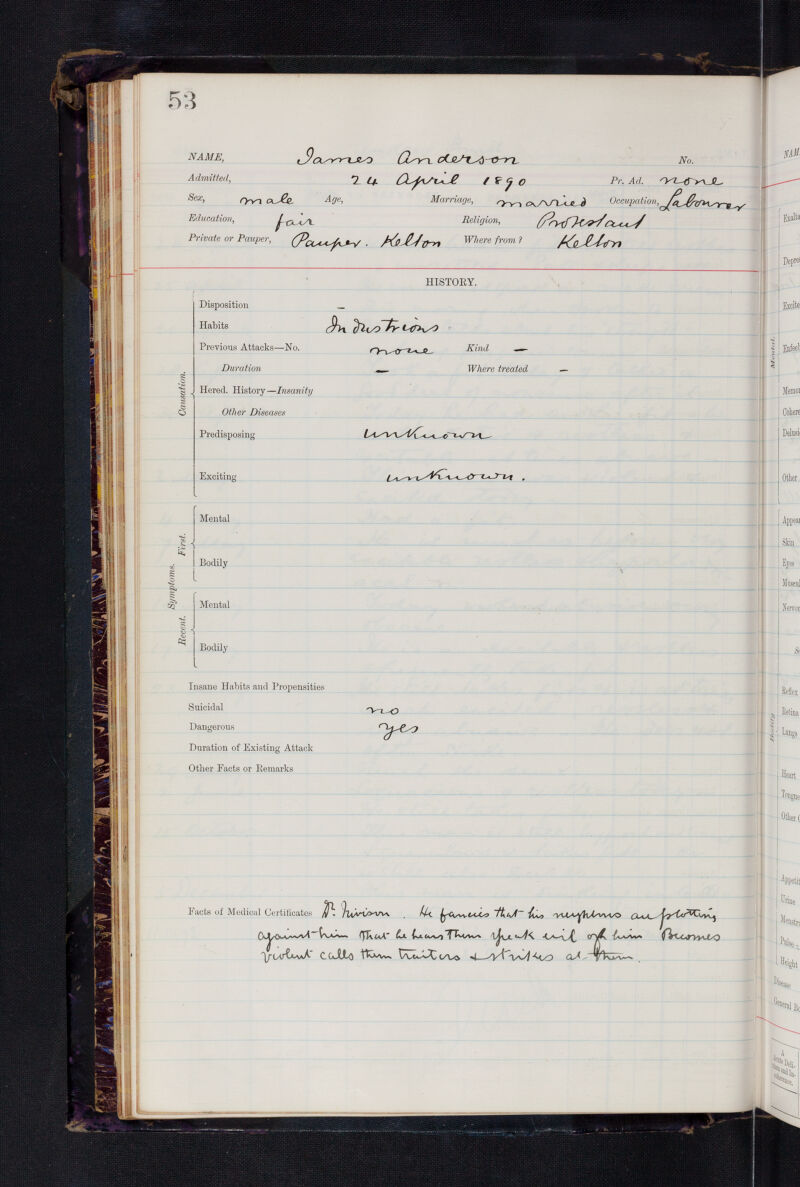 53
NAME, James Anderson No.
Admitted, 24 April 1890 Pr. Ad. none
Sex, male Age, Marriage, married Occupation, Labourer
Education, fair Religion, Protestant
Private or Pauper, Pauper. Kelton Where from? Kelton
HISTORY.
Causation.
Disposition —
Habits Industrious
Previous Attacks—No. none Kind —
Duration — Where treated —
Hered. History—Insanity
Other Diseases
Predisposing unknown
Exciting unknown.
Symptoms.
First.
Mental
Bodily
Recent.
Mental
Bodily
Insane Habits and Propensities
Suicidal no
Dangerous yes
Duration of Existing Attack
Other Facts or Remarks
Facts of Medical Certificates Dr. . He fancies that his neighbours are plotting
against him That he hears them speak evil of him Becomes
violent calls them traitors & strikes at them.
NAM
Exalta
Depres
Excite
Enfeebl
Mental.
Memor
Cohere
Delusi
Other
Appear
Skin
Eyes
Muscul
Nervou
Reflex
Retina
Lungs
Bodily
Heart
Tongue
Other
Appetit
Urine
Menstr
Pulse
Height
Disease
General Bo
A